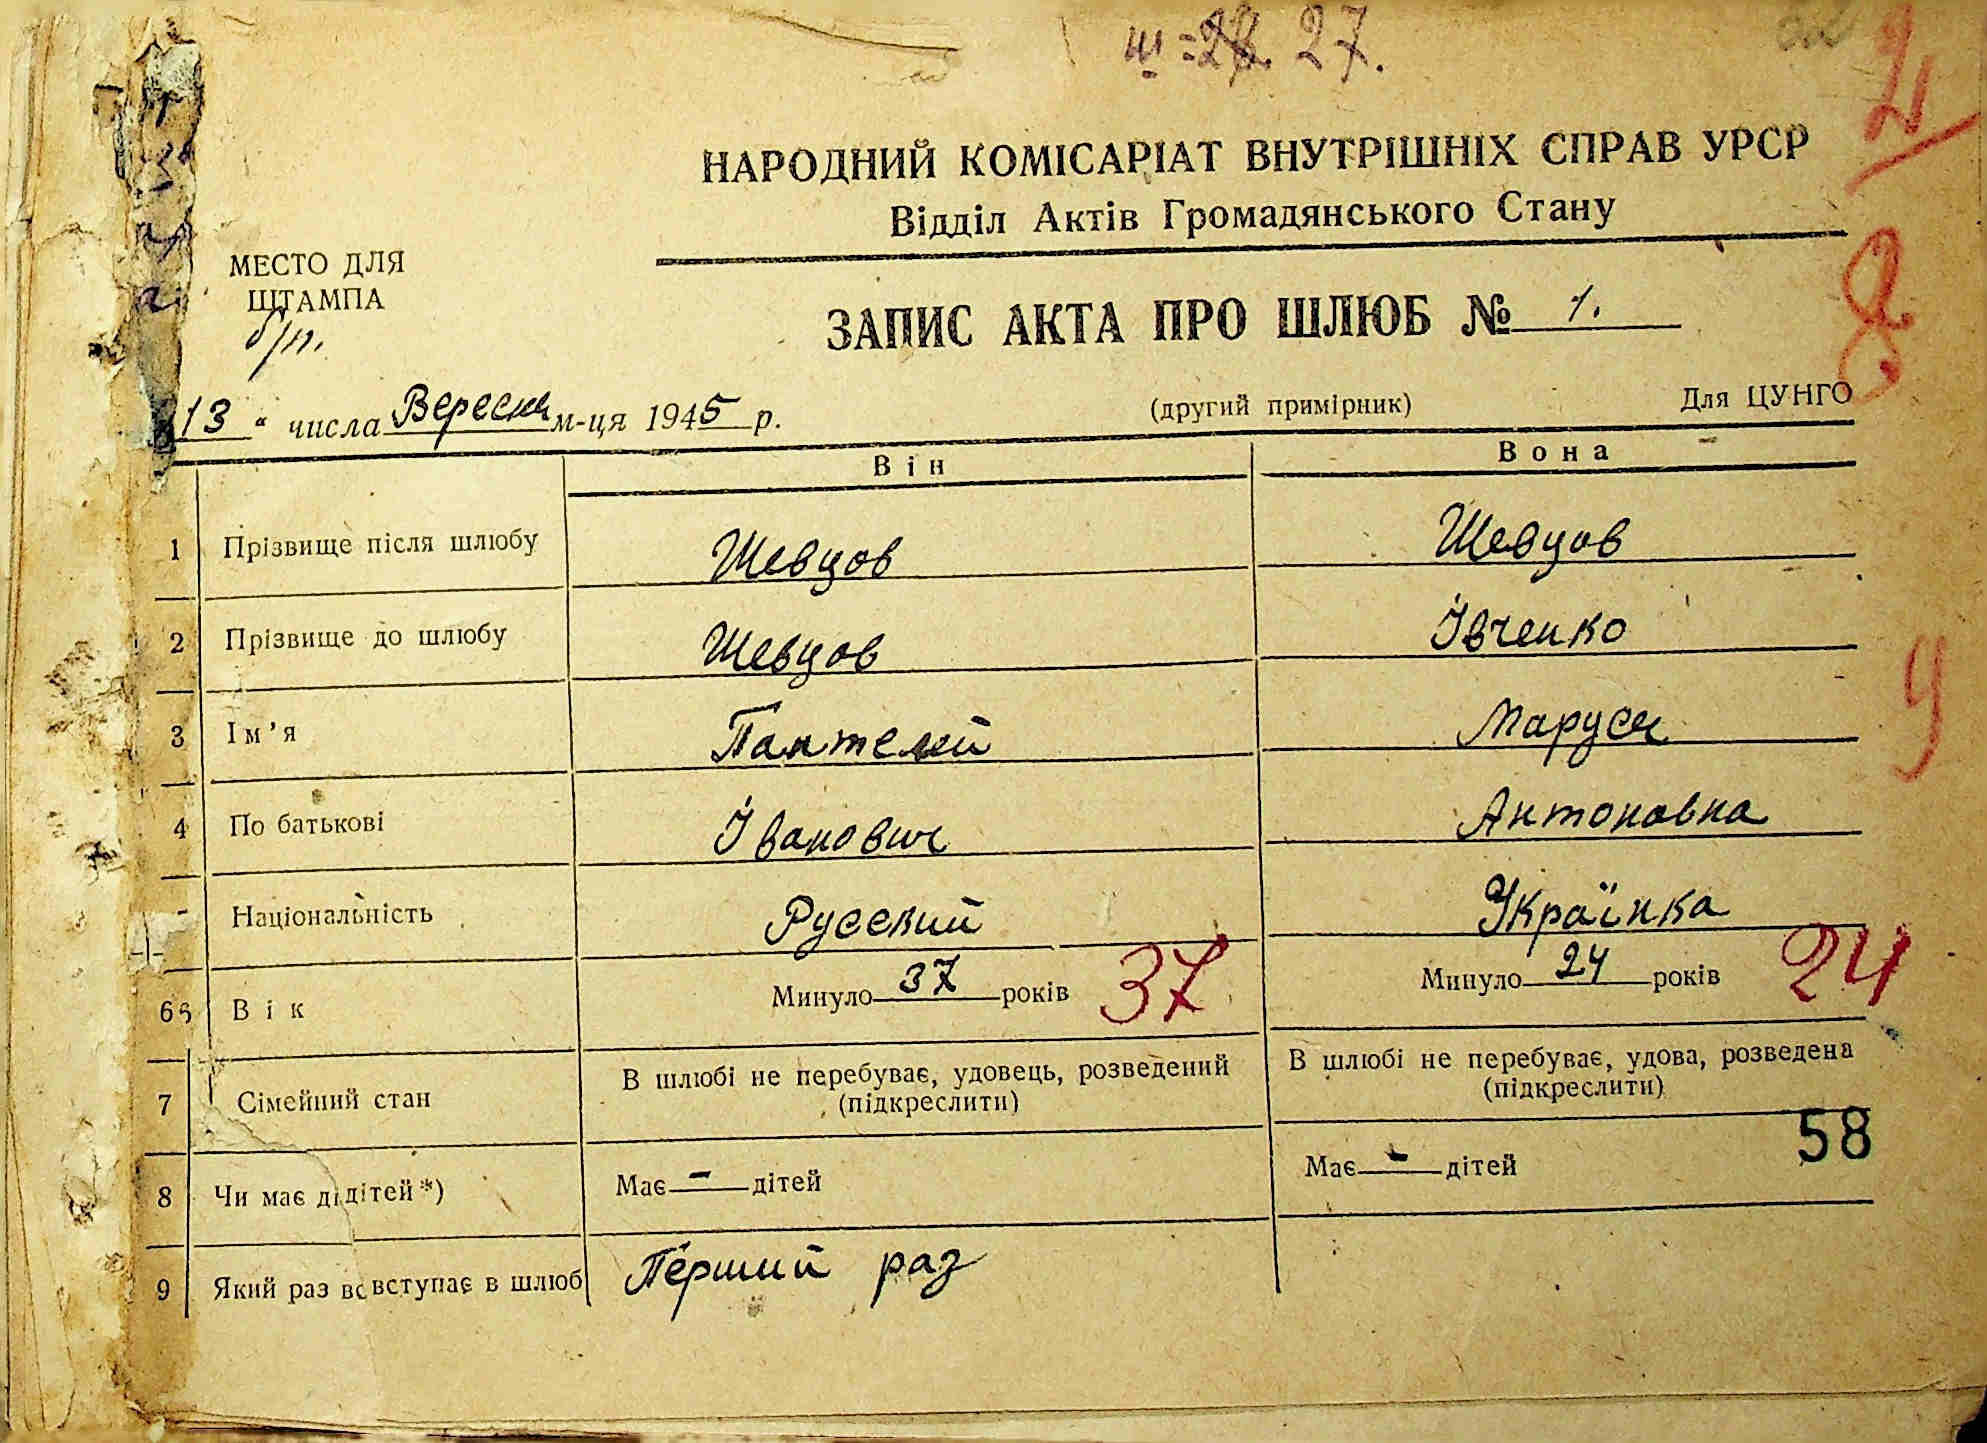 ш = 27.
НАРОДНИЙ КОМІСАРІАТ ВНУТРІШНІХ СПРАВ УРСР
Відділ Актів Громадянського Стану
МЕСТО ДЛЯ
ШТАМПА
б/п.
ЗАПИС АКТА ПРО ШЛЮБ № 1.
13 " числа Вересня м-ця 1945 р.
(другий примірник) Для ЦУНГО
Він Вона
1 Прізвище після шлюбу Шевцов Шевцов
2 Прізвище до шлюбу Шевцов Івченко
3 Ім'я Пантелей Маруся
4 По батькові Іванович Антоновна
Національність Русский Українка
6 Вік Минуло 37 років 37 Минуло 24 років 24
7 Сімейний стан В шлюбі не перебуває, удовець, розведений (підкреслити) В шлюбі не перебуває, удова, розведена (підкреслити)
58
8 Чи має ді дітей *) Має — дітей Має — дітей
9 Який раз вс вступає в шлюб Перший раз